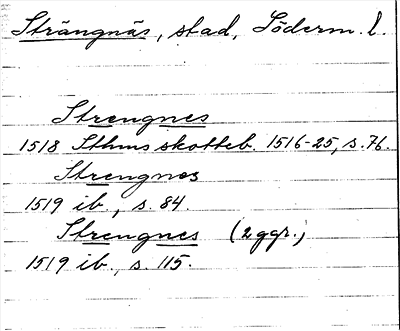 Strängnäs, stad, Söderm. l.
Strengnes
1518 Sthms skotteb. 1516-25, s. 76.
Strengnes
1519 ib., s. 84.
Strengnes (2 ggr.)
1519 ib., s. 115.